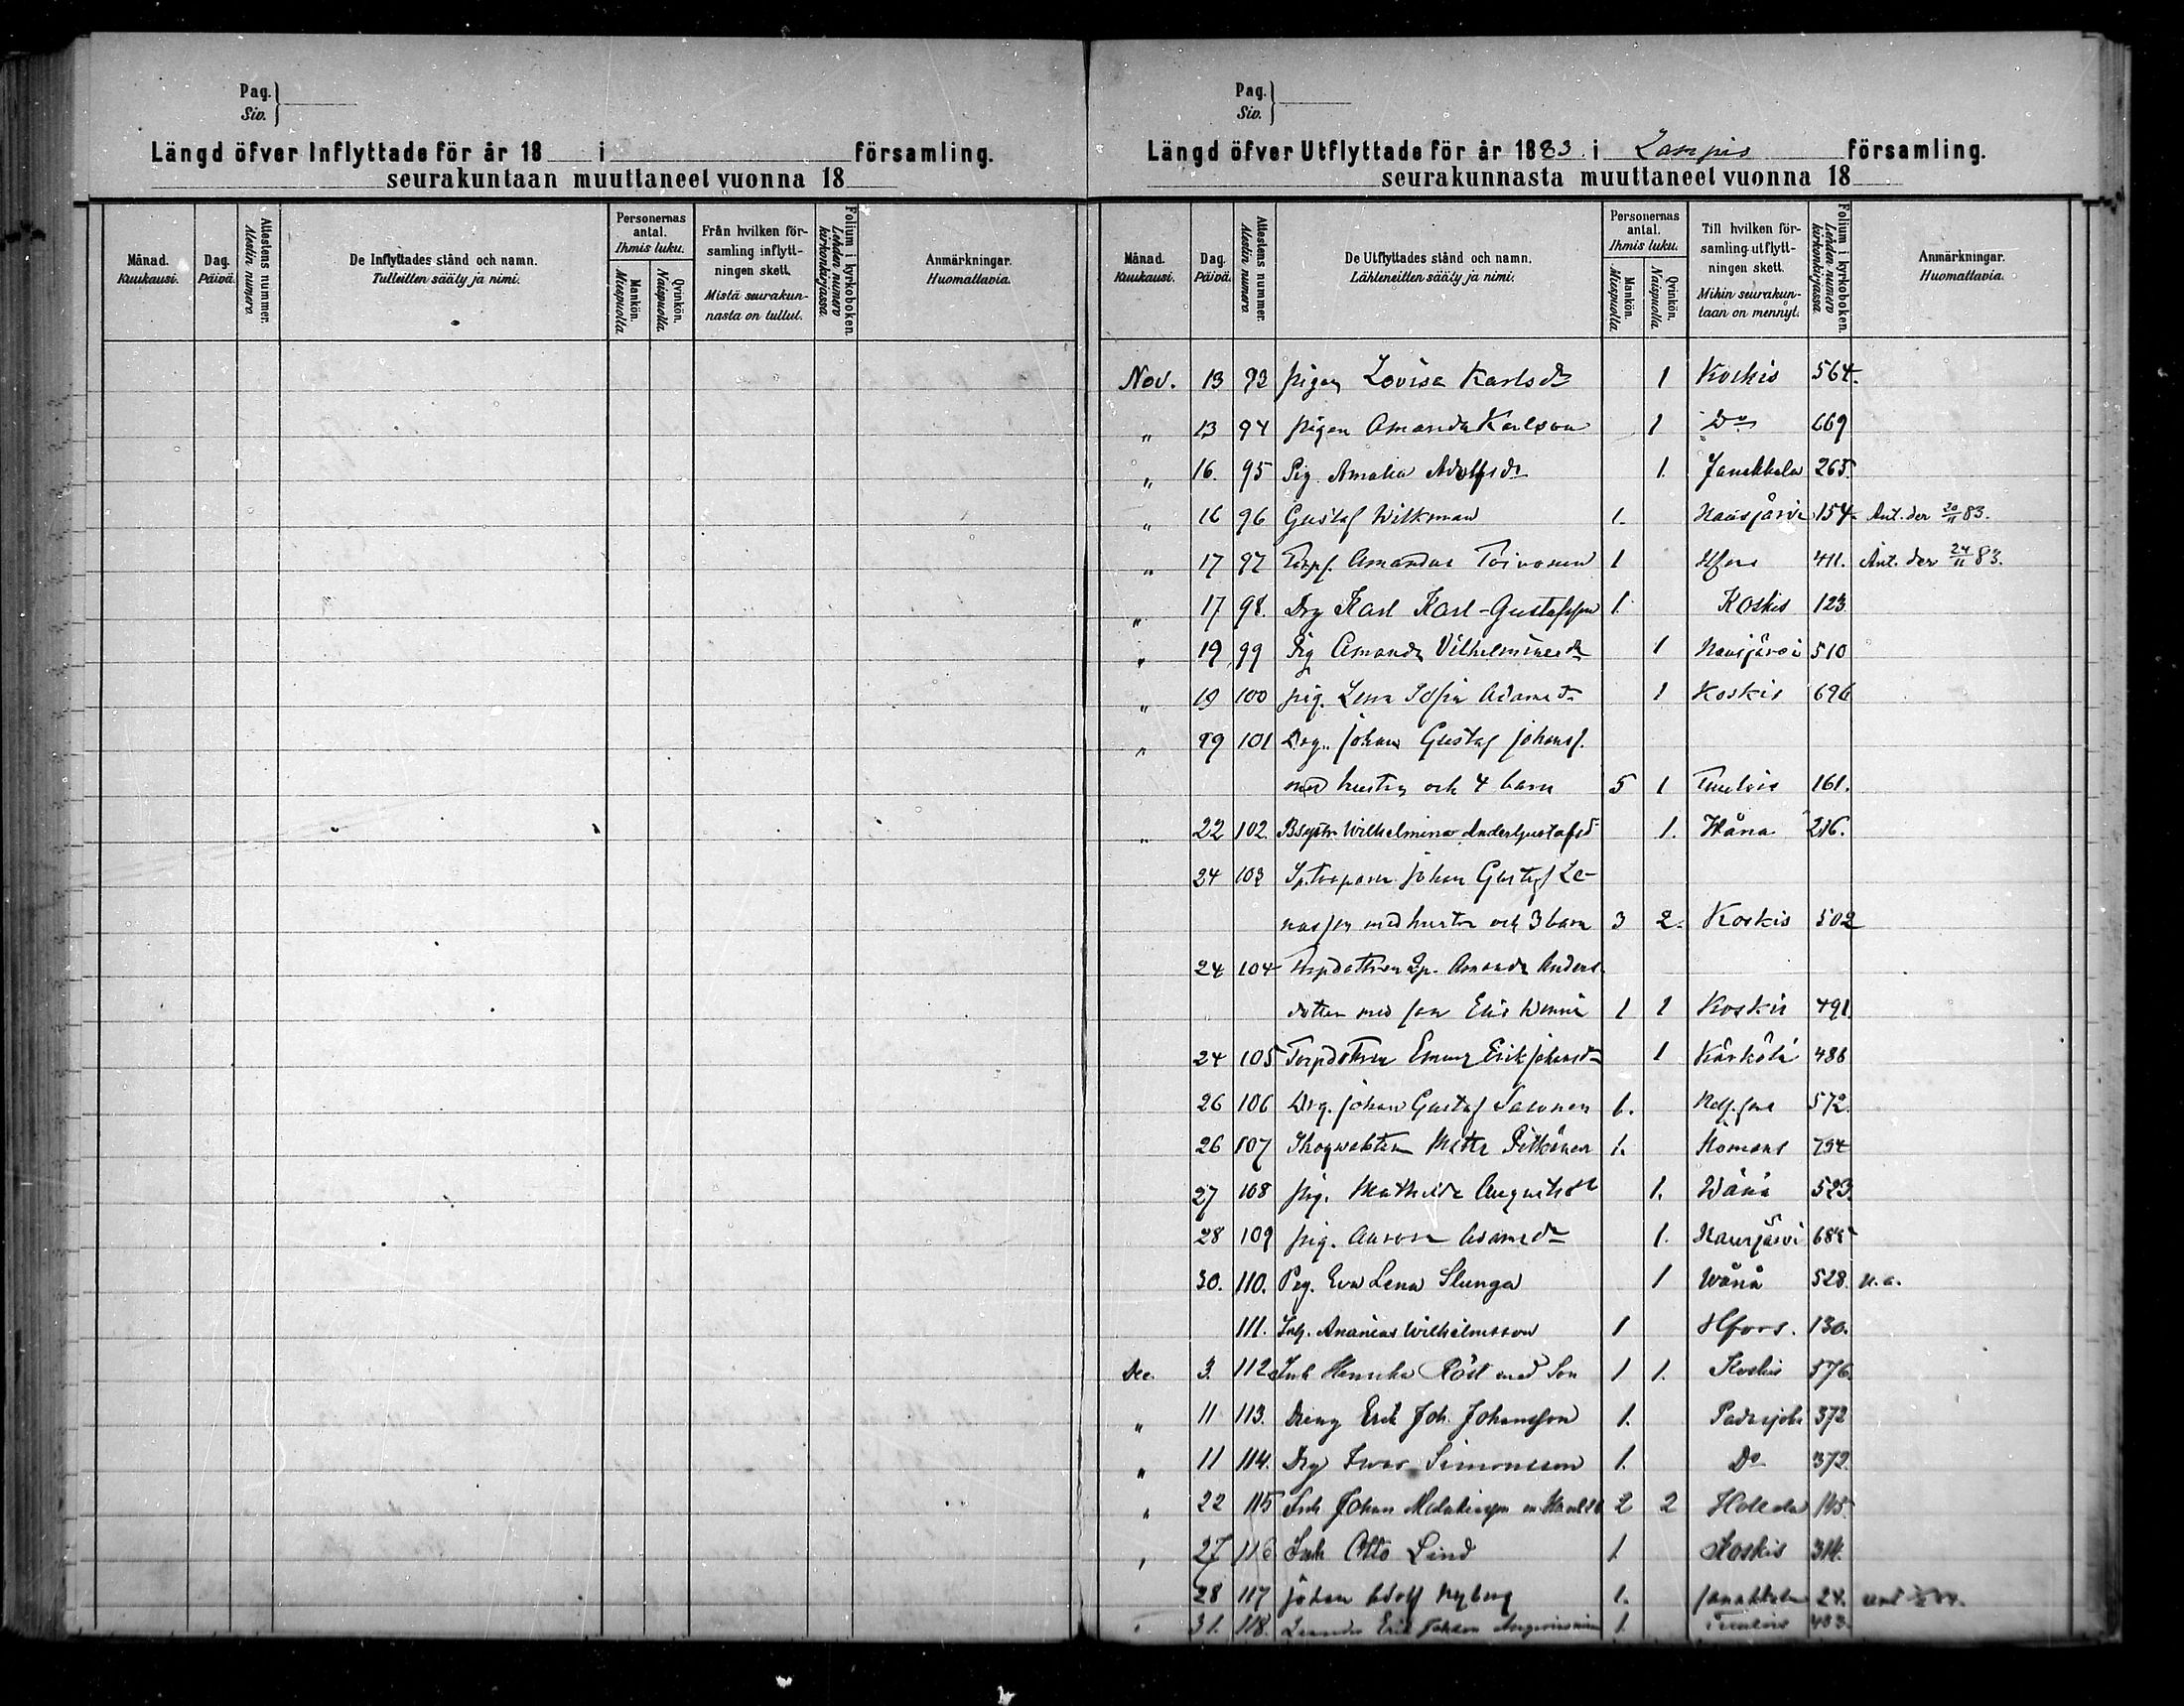 Pag.
Siv.
Längd öfver Inflyttade för år 18 i församling.
seurakuntaan muuttaneet vuonna 18
Månad.
Kuukausi.
Dag.
Päivä.
Attestens nummer.
Alestin numero.
De Inflyttades stånd och namn.
Tulleitten sääty ja nimi.
Personernas antal.
Ihmis luku.
Mankön.
Miespuolia.
Qvinkön.
Naispuolia.
Från hvilken församling inflyttningen skett.
Mistä seurakunnasta on tullut.
Folium i kyrkoboken.
Lehden numero kirkonkirjassa.
Anmärkningar.
Huomattavia.
Pag.
Siv.
Längd öfver Utflyttade för år 1883. i Lampis församling.
seurakunnasta muuttaneet vuonna 18
Månad.
Kuukausi.
Dag.
Päivä.
Attestens nummer.
Alestin numero.
De Utflyttades stånd och namn.
Lähteneitten sääty ja nimi.
Personernas antal.
Ihmis luku.
Mankön.
Miespuolia.
Qvinkön.
Naispuolia.
Till hvilken församling utflyttningen skett.
Mihin seurakuntaan on mennyt.
Folium i kyrkoboken.
Lehden numero kirkonkirjassa.
Anmärkningar.
Huomattavia.
Nov. 13 93 pigan Lovisa Karlsdr 1 Koskis 564.
" 13 94 pigan Amanda Karlsson 1 Do 669
" 16. 95 Pig. Amalia Adolfsdr 1. Janakkala 265.
" 16 96 Gustaf Wilkman 1. Hausjärvi 154. Ant. den 20/11 83.
" 17 97 Torps. Amandus Toivonen 1 Hfors 411. Ant. den 24/11 83.
" 17 98. Drg Karl Karl-Gustafsson 1. Koskis 123
" 19 99 Pig Amanda Vilhelminasdr 1 Hausjärvi 510
" 19 100 pig. Lena Sofia Adamsdr 1 Koskis 696
" 19 101 Drg. Johan Gustaf Johans.
med hustru och 4 barn 5 1 Tuulois 161.
" 22 102. Wilhelmina Andersgustafsdr 1. Wånå 216.
24 103 Johan Gustaf Le-
nasson med hustru och 3 barn 3 2. Koskis 502
24 104 Torpdottren Amanda Anders
dotter med son 1 1 Koskis 491.
24 105 Torpdottren Emma Erikjohansdr 1 Kärkölä 486
26 106 Drg. Johan Gustaf Salonen 1. Helsf. fors 572.
26 107 Skogvakten Matts Pitkänen 1. 794
27 108 pig. Mathilda Augustsdr 1. Wånå 523
28 109 pig. Aurora Adamsdr 1. Hausjärvi 685
30. 110. Pig. Eva Lena Slunga 1 Wånå 528. u.a.
111. Inh. Ananias Wilhelmsson 1 Hfors. 130.
Dec. 3. 112 Inh Henrika Röst med Son 1 1. Koskis 576.
" 11 113. Dreng Erik Joh. Johansson 1. Padasjoki 372
" 11 114. Drg Ivar Simonsson 1. Do 372
" 22 115 Inh Johan 2 2 Hollola 145.
" 27 116 Inh Otto Lind 1. Koskis 314.
28 117 Johan Adolf Nyberg 1. Janakkala 24.
" 31. 118. Leander Erik Johan 1. Tuulois 403.